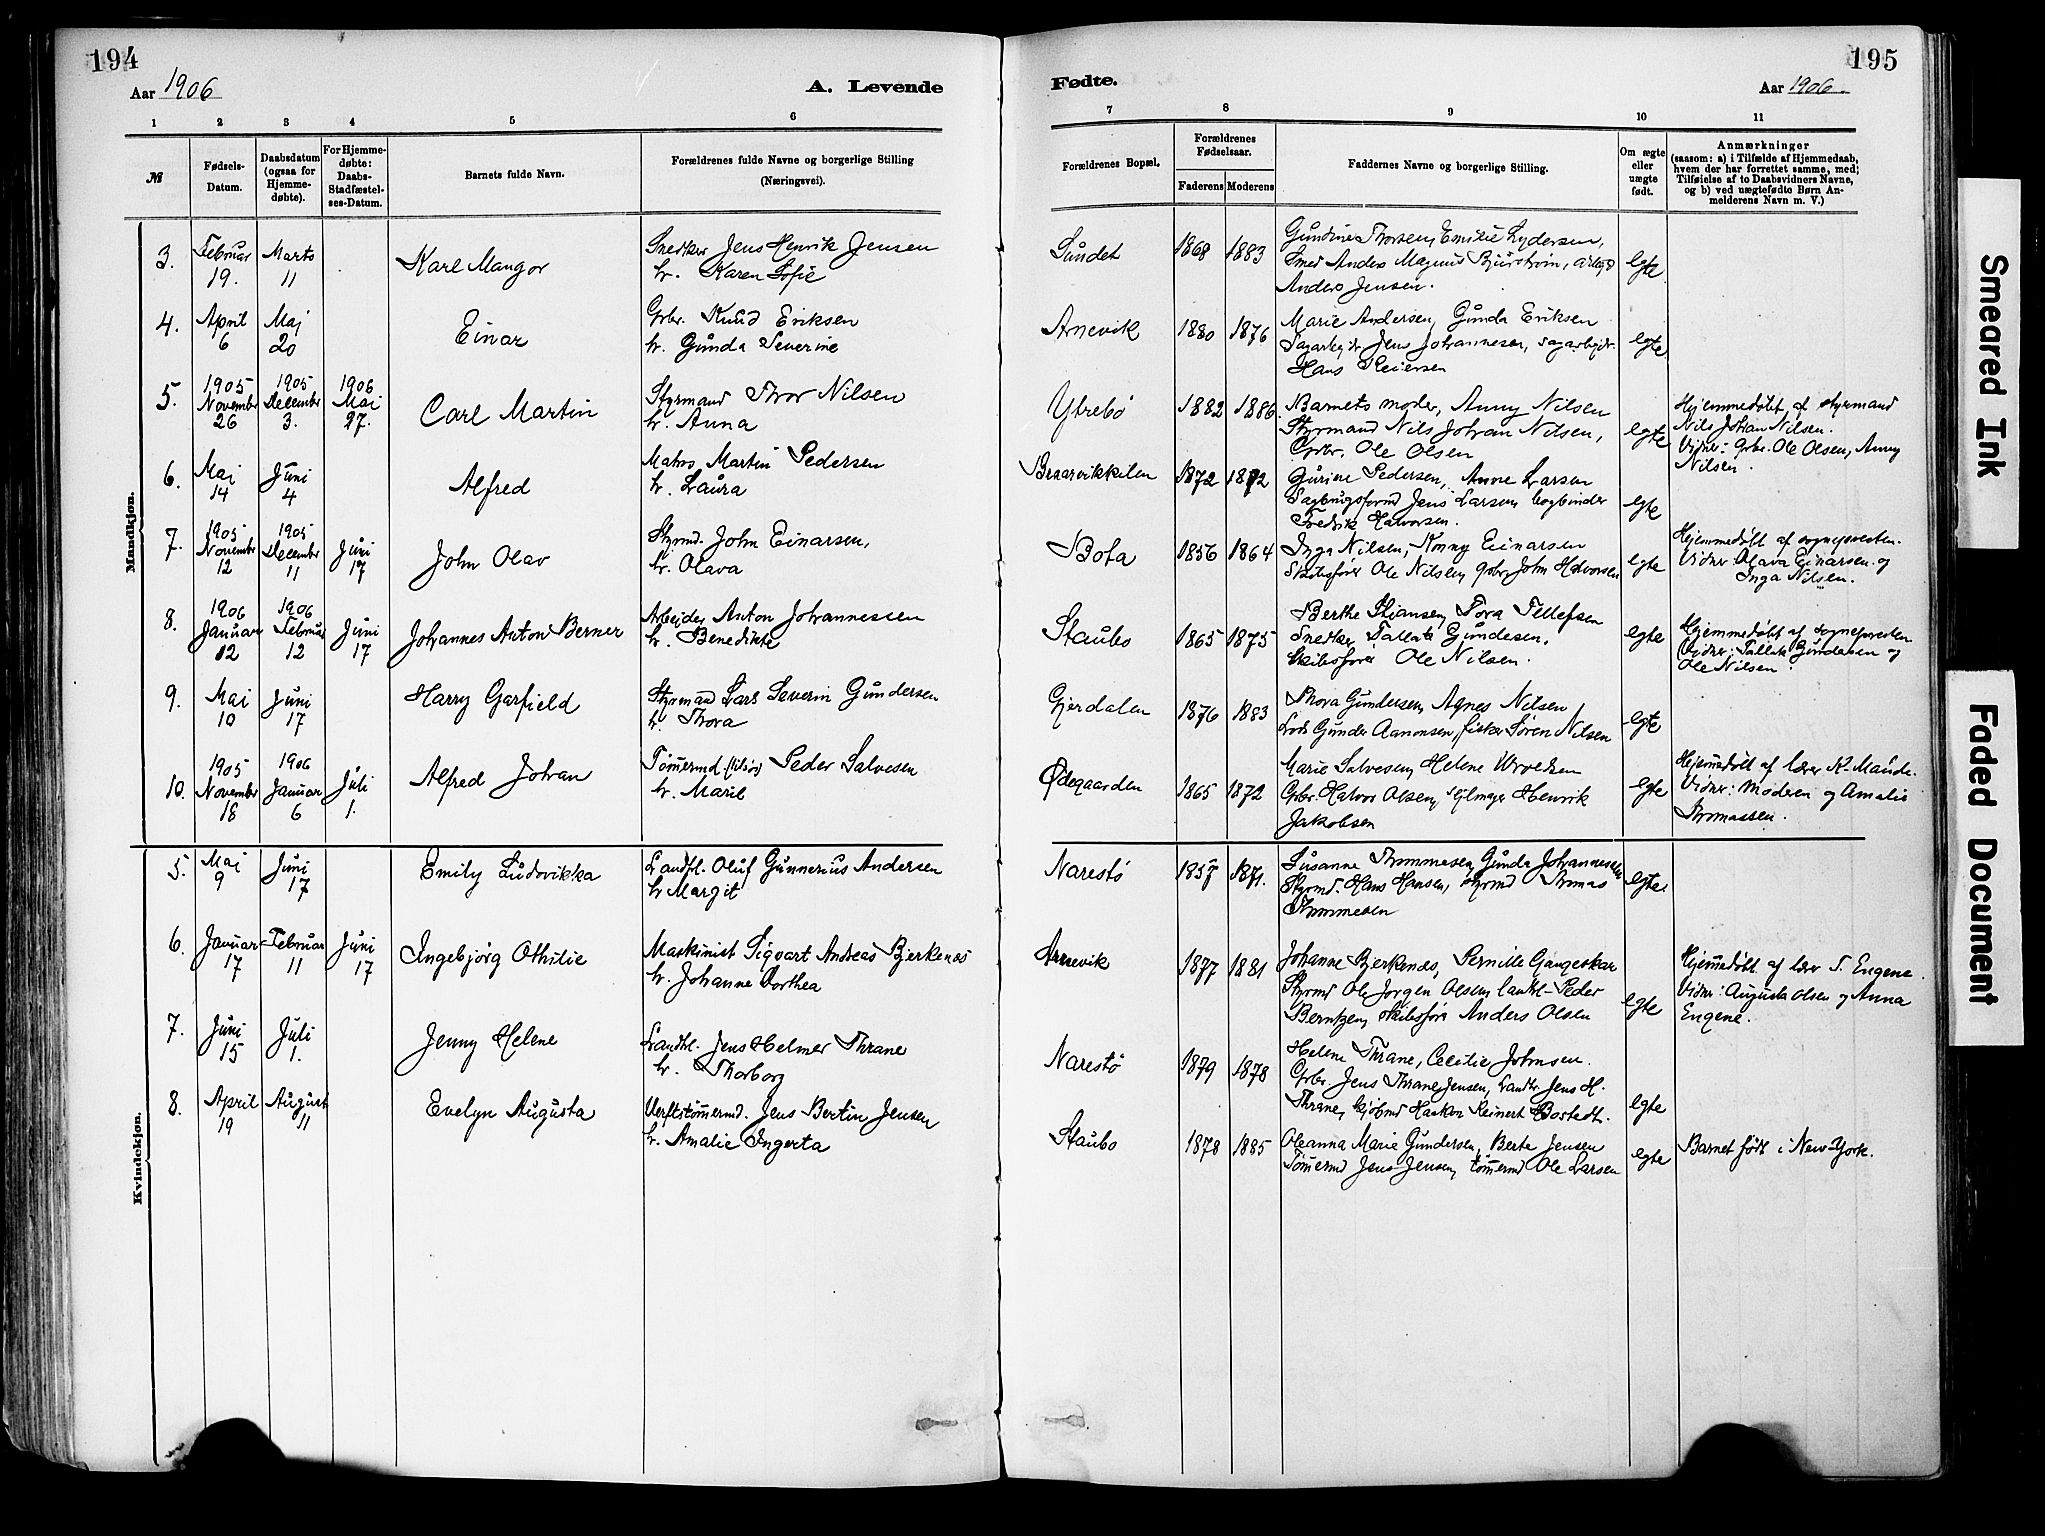 194
Aar 1906
A. Levende
1 2 3 4 5 6
№
Fødsels-Datum.
Daabsdatum (ogsaa for Hjemme-døbte).
For Hjemme-døbte: Daabs-Stadfæstel-ses-Datum.
Barnets fulde Navn.
Forældrenes fulde Navne og borgerlige Stilling
(Næringsvei).
Mandkjøn.
3. Februar 19. Marts 11 Karl Mangor Snedker Jens Henrik Jensen
h. Karen Sofie
4. April 6 Maj 20 Einar Grbr. Knud Eriksen
h. Gunda Severine
5. 1905 November 26 1905 December 3. 1906 Mai 27. Carl Martin Styrmand Thor Nilsen
h. Anna
6. Maj 14 Juni 4 Alfred Matros Martin Pedersen
h. Laura
7. 1905 November 12 1905 December 11 Juni 17 John Olav Styrmd. John Einarsen,
h. Olava
8. 1906 Januar 12 1906 Februar 12 Juni 17 Johannes Anton Berner Arbeider Anton Johannessen
h. Benedikte
9. Maj 10 Juni 17 Harry Garfield Styrmand Lars Severin Gundersen
h. Thora
10. 1905 November 18 1906 Januar 6 Juli 1. Alfred Johan Tømermd Peder Salvesen
h. Marie
Kvindekjøn.
5. Maj 9 Juni 17 Emily Ludovikka Landhl. Oluf Gunnerius Andersen
h. Margit
6. Januar 17 Februar 11 Juni 17 Ingebjørg Othilie Maskinist Sigvart Andreas Bjerkenæs
h. Johanne Dorthea
7. Juni 15 Juli 1. Jenny Helene Landhl. Jens Helmer Thrane
h. Thorborg
8. April 19 August 11 Evelyn Augusta Verftstømermd. Jens Bertin Jensen
h. Amalie Ingerta
195
Fødte.
Aar 1906.
7 8 9 10 11
Forældrenes Bopæl.
Forældrenes Fødselsaar.
Faderens Moderens
Faddernes Navne og borgerlige Stilling.
Om ægte eller uægte født.
Anmærkninger
(saasom: a) i Tilfælde af Hjemmedaab,
hvem der har forrettet samme, med
Tilføielse af to Daabsvidners Navne,
og b) ved uægtefødte Børn An-
melderens Navn m. V.)
Sundet 1868 1883 Gundine Thorsen, Emilie Lydersen,
Smed Anders Magnus Bjurstrøm,
Anders Jensen. egte
Arnevik 1880 1876 Marie Andersen, Gunda Eriksen
Sagarbejdr Jens Johannesen, sagarbejdr.
Hans Reiersen egte
Ytrebø 1882 1886 Barnets moder, Anny Nilsen
Styrmand Nils Johan Nilsen,
Grbr. Ole Olsen egte
Hjemmedøbt, af styrmand
Nils Johan Nilsen.
Vidner: Grbr. Ole Olsen, Anny
Nilsen.
Braarvikkilen 1872 1872 Gurine Pedersen, Anne Larsen
Sagbrugsformd Jens Larsen, bogbinder
Fredrik Halvorsen. egte
Bota 1856 1864 Inga Nilsen, Konny Einarsen
Skibsfører Ole Nilsen, Grbr. John Halvorsen egte
Hjemmedøbt af sognepresten.
Vidner: Olava Einarsen og
Inga Nilsen.
Staubo 1865 1875 Berthe Stiansen, Tora Tellefsen
Snedker Tallak Gundesen,
Skibsfører Ole Nilsen. egte
Hjemmedøbt af sognepresten
Vidner: Tallak Gundesen og
Ole Nilsen.
Gjerdalen 1876 1883 Thora Gundersen, Agnes Nilsen
Lods Gunder Aanonsen, fisker Søren Nilsen egte
Ødegaarden 1865 1872 Marie Salvesen, Helene
Grbr. Halvor Olsen, Sejlmager Henrik
Jakobsen egte
Hjemmedøbt af lærer K. Maude.
Vidner: Moderen og Amalie
Thomassen.
Narestø 1857 1871. Susanne Thommesen, Gunda Johannessen
Styrmd. Hans Hansen, styrmd Thomas
Thommesen egte
Arnevik 1877 1881 Johanne Bjerkenæs, Pernille
Styrmd Ole Jørgen Olsen, landhl. Peder
Berntzen, skibsfører Anders Olsen egte
Hjemmedøbt af lærer T. Eugene.
Vidner: Augusta Olsen og Anna
Eugene.
Narestø 1879 1878 Helene Thrane, Cecilie Johnsen.
Grbr. Jens Thrane Jensen, Landhl. Jens H.
Thrane, Kjøbmd Haakon Reinert Bostedt. egte
Staubo 1878 1885 Oleanna Marie Gundersen, Berte Jensen
Tømermd Jens Jensen, tømermd Ole Larsen egte
Barnet født i New-York.
Smeared Ink
Faded Document